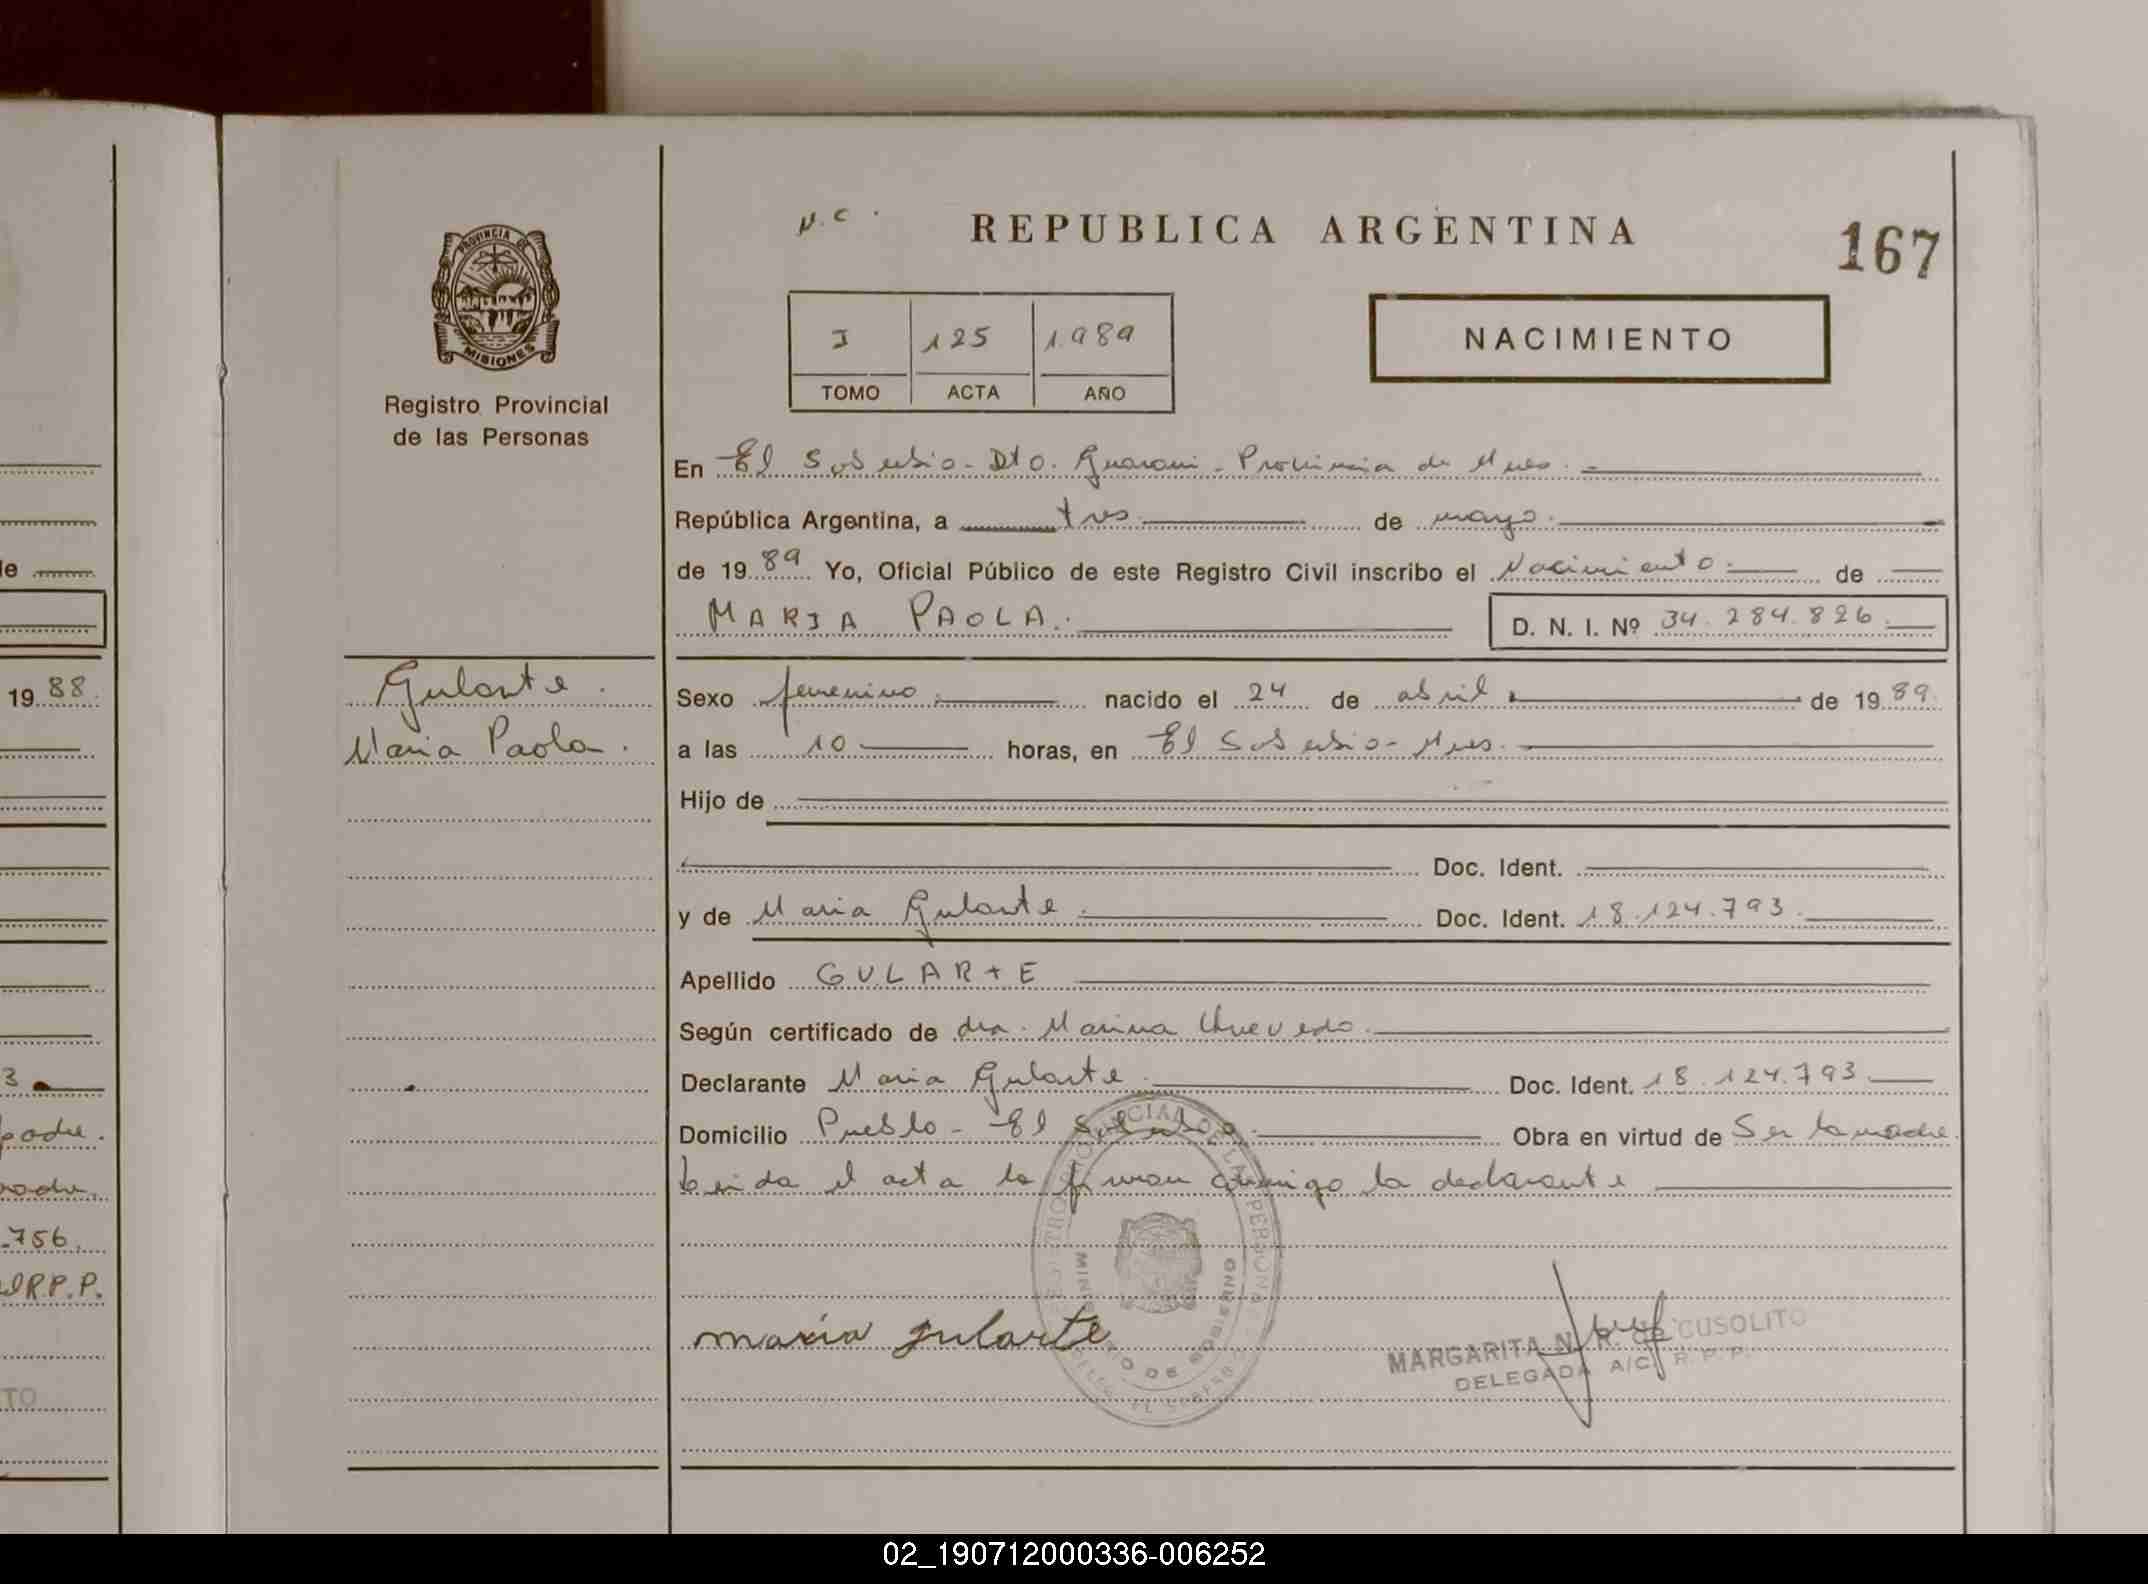 le
19 88.
3
padre.
madre.
.756.
R.P.P.
TO
PROVINCIA DE
MISIONES
Registro Provincial
de las Personas
Gularte.
Maria Paola.
N.C.
REPUBLICA ARGENTINA
167
I 125 1.989
TOMO ACTA AÑO
NACIMIENTO
En El Soberbio - Dto. Guarani - Provincia de Mnes.
República Argentina, a tres de mayo.
de 19 89 Yo, Oficial Público de este Registro Civil inscribo el Nacimiento. de
MARIA PAOLA. D. N. I. Nº 34.284.826.
Sexo femenino. nacido el 24 de abril de 19 89.
a las 10 horas, en El Soberbio - Mnes.
Hijo de
Doc. Ident.
y de Maria Gularte. Doc. Ident. 18.124.793.
Apellido GULARTE
Según certificado de dra. Marina
Declarante Maria Gularte. Doc. Ident. 18.124.793
Domicilio Pueblo - El Soberbio. Obra en virtud de Ser la madre.
Leida el acta la firman conmigo la declarante
maria gularte
MINISTERIO DE GOBIERNO
MARGARITA N. R. de CUSOLITO
DELEGADA A/C. R. P. P.
02_190712000336-006252